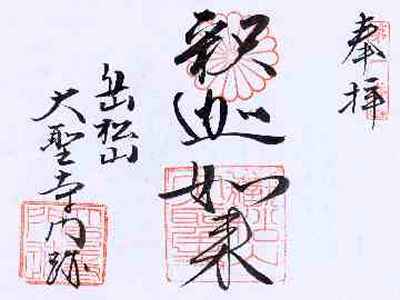 奉拝
釈迦如来
岳松山
大聖寺門跡